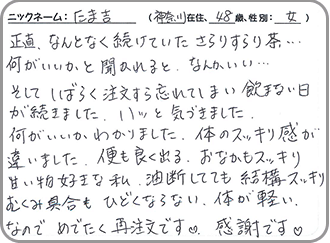 ニックネーム：たま吉 （神奈川在住、48歳、性別： 女 ）
正直、なんとなく続けていた さらりすらり茶…
何がいいかと聞かれると、なんかいい…
そして しばらく注文すら忘れてしまい 飲まない日
が続きました。ハッと 気づきました。
何がいいかわかりました。体のスッキリ感が
違いました。便も良く出る。おなかもスッキリ
甘い物好きな私、油断してても 結構スッキリ
むくみ具合も ひどくならない。体が軽い。
なので めでたく 再注文です♡。感謝です♡